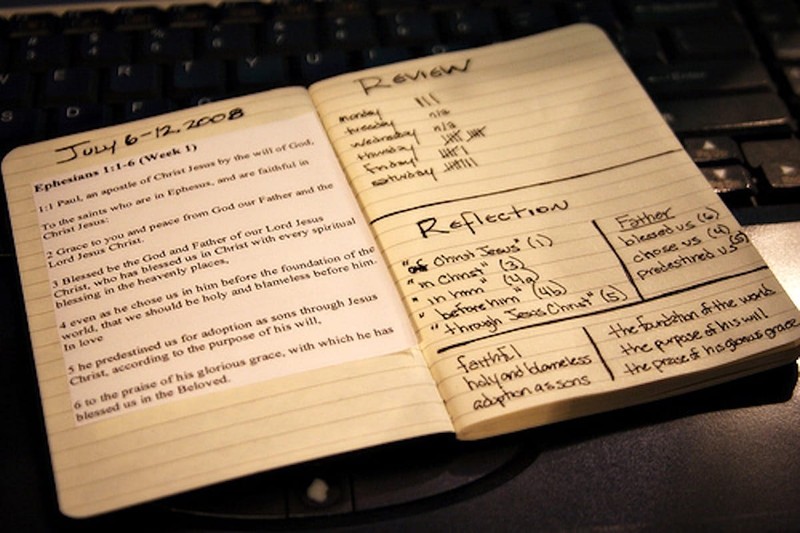 July 6-12, 2008
Ephesians 1:1-6 (Week 1)
1:1 Paul, an apostle of Christ Jesus by the will of God,
To the saints who are in Ephesus, and are faithful in
Christ Jesus:
2 Grace to you and peace from God our Father and the
Lord Jesus Christ.
3 Blessed be the God and Father of our Lord Jesus
Christ, who has blessed us in Christ with every spiritual
blessing in the heavenly places,
4 even as he chose us in him before the foundation of the
world, that we should be holy and blameless before him.
In love
5 he predestined us for adoption as sons through Jesus
Christ, according to the purpose of his will,
6 to the praise of his glorious grace, with which he has
blessed us in the Beloved.
Review
monday
tuesday n/a
wednesday n/a
thursday
friday
saturday
Reflection
"of Christ Jesus" (1)
"in Christ" (3)
"in him" (4a)
"before him" (4b)
"through Jesus Christ" (5)
Father
blessed us (6)
chose us (4)
predestined us (5)
faithful
holy and blameless
adoption as sons
the foundation of the world
the purpose of his will
the praise of his glorious grace
V E R T Y U
S D F
Enter